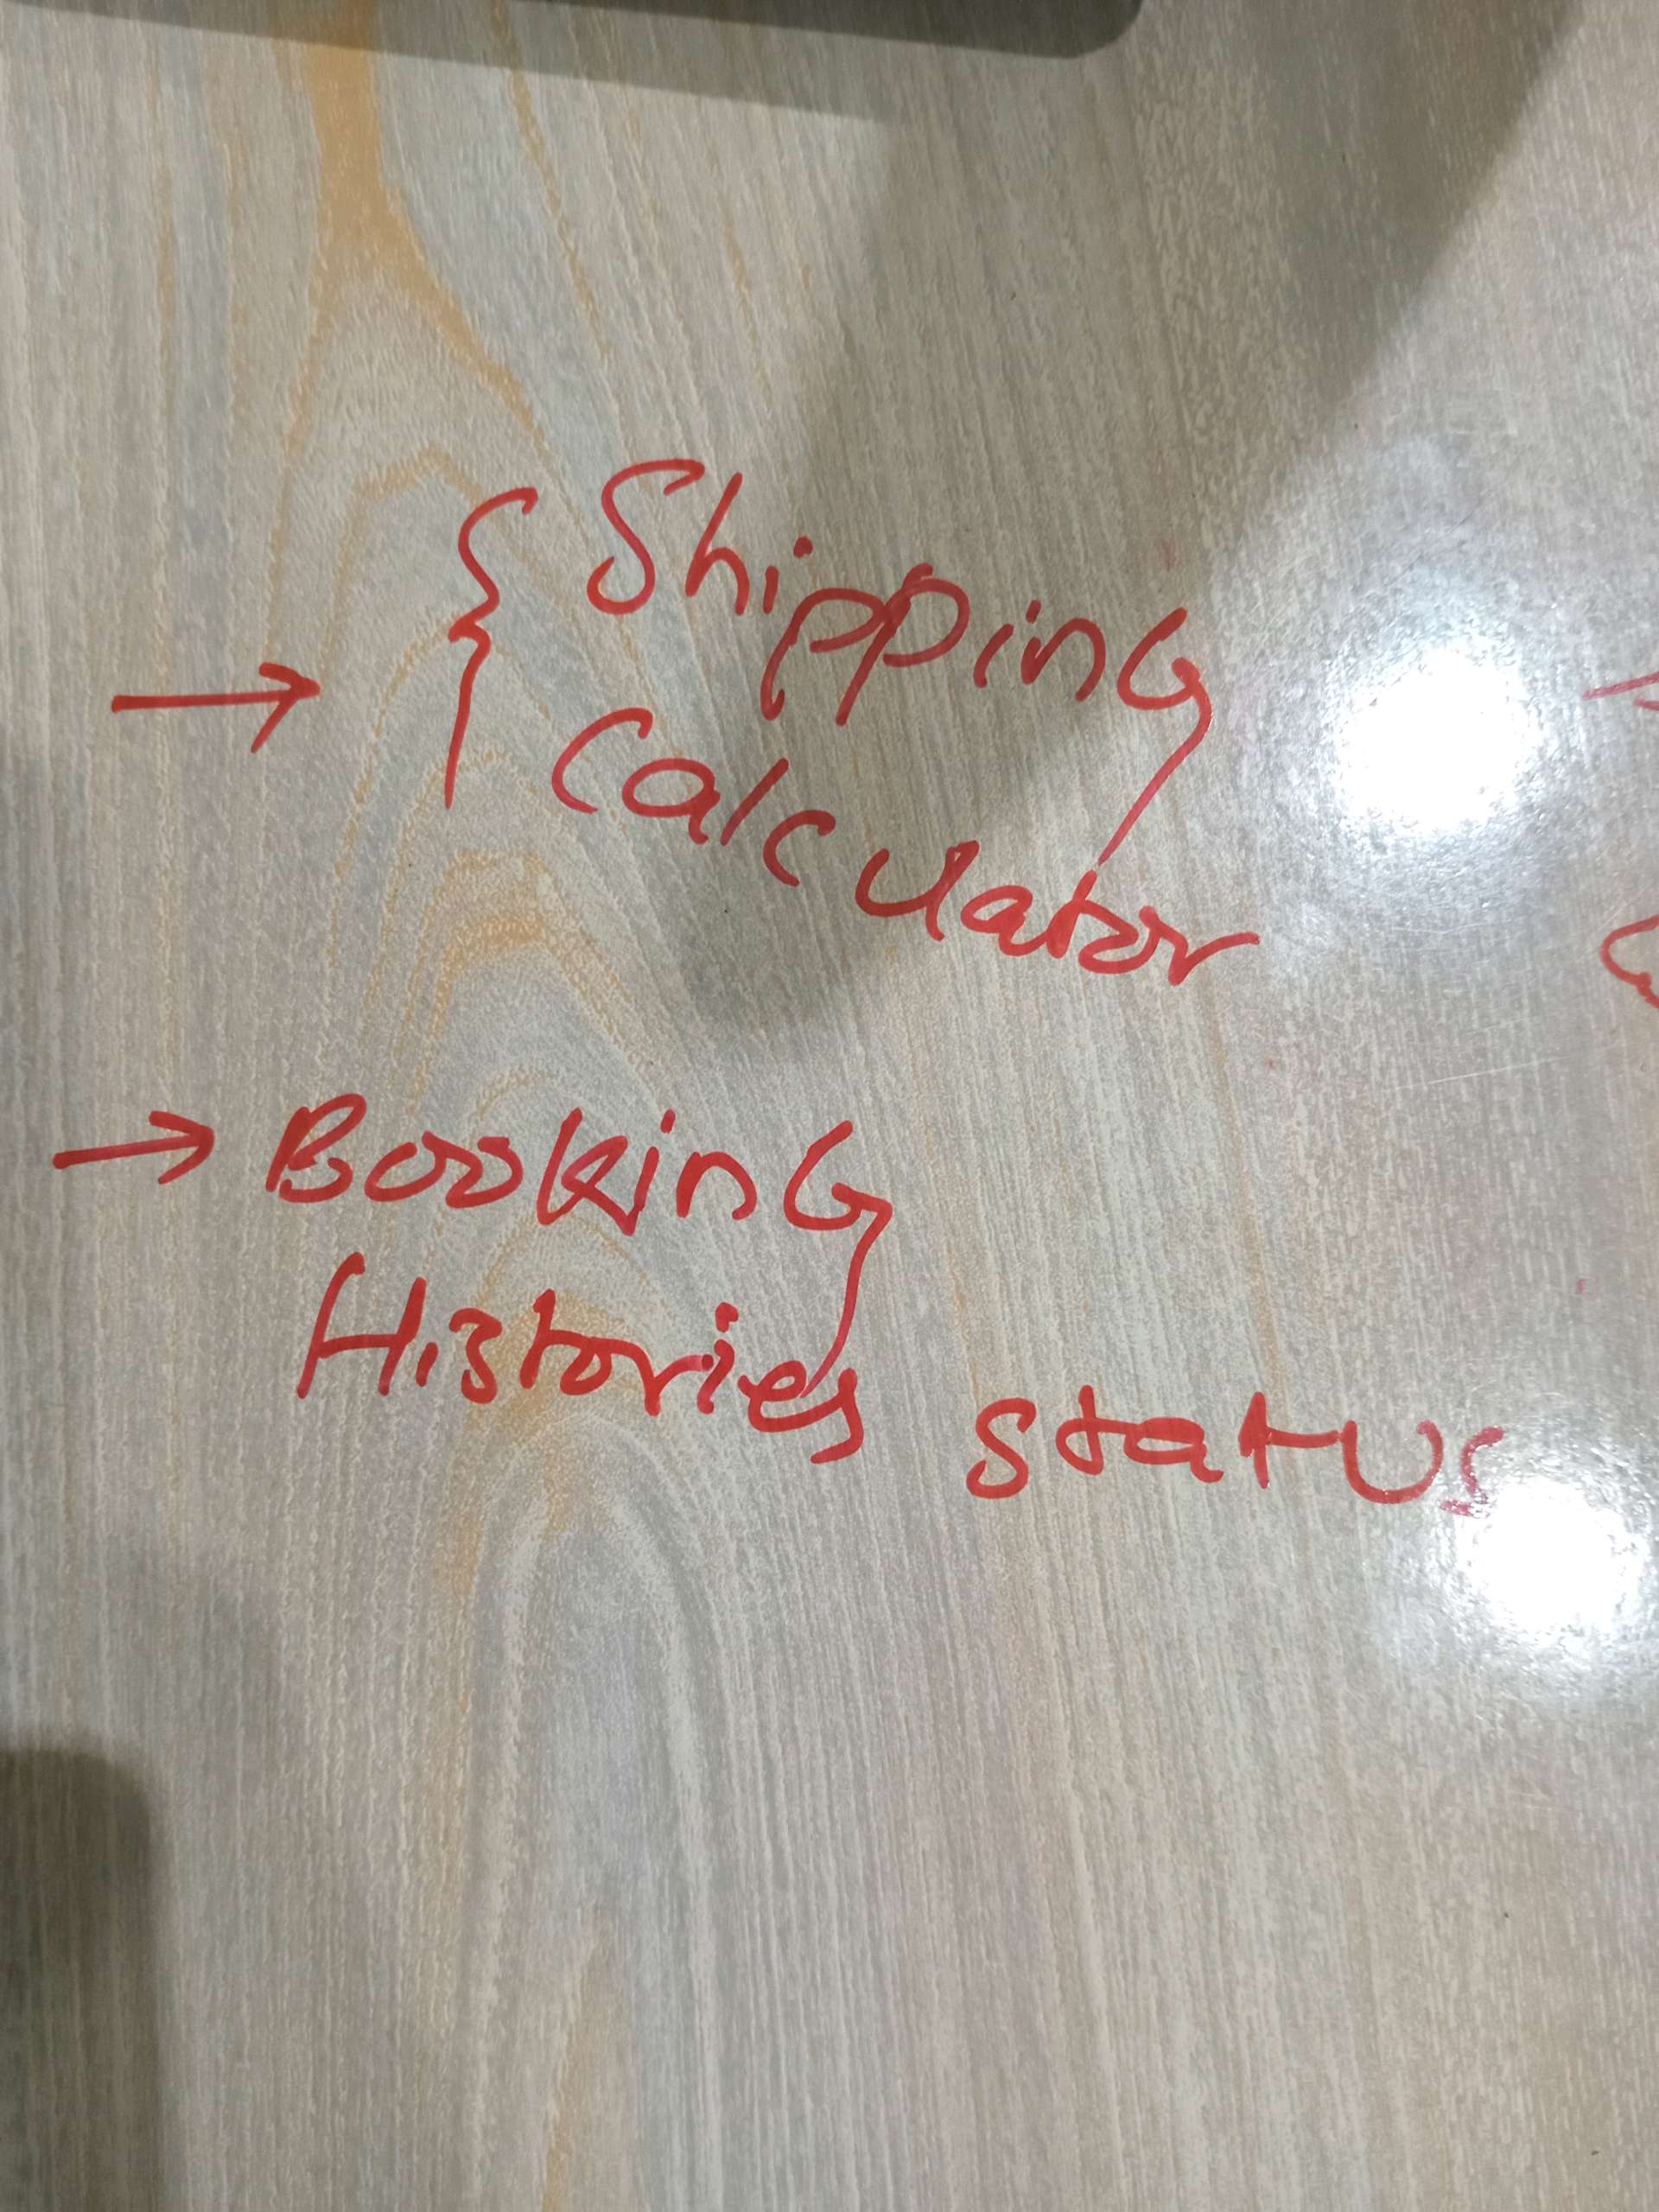 → { Shipping
Calculator
→ Booking
Histories status